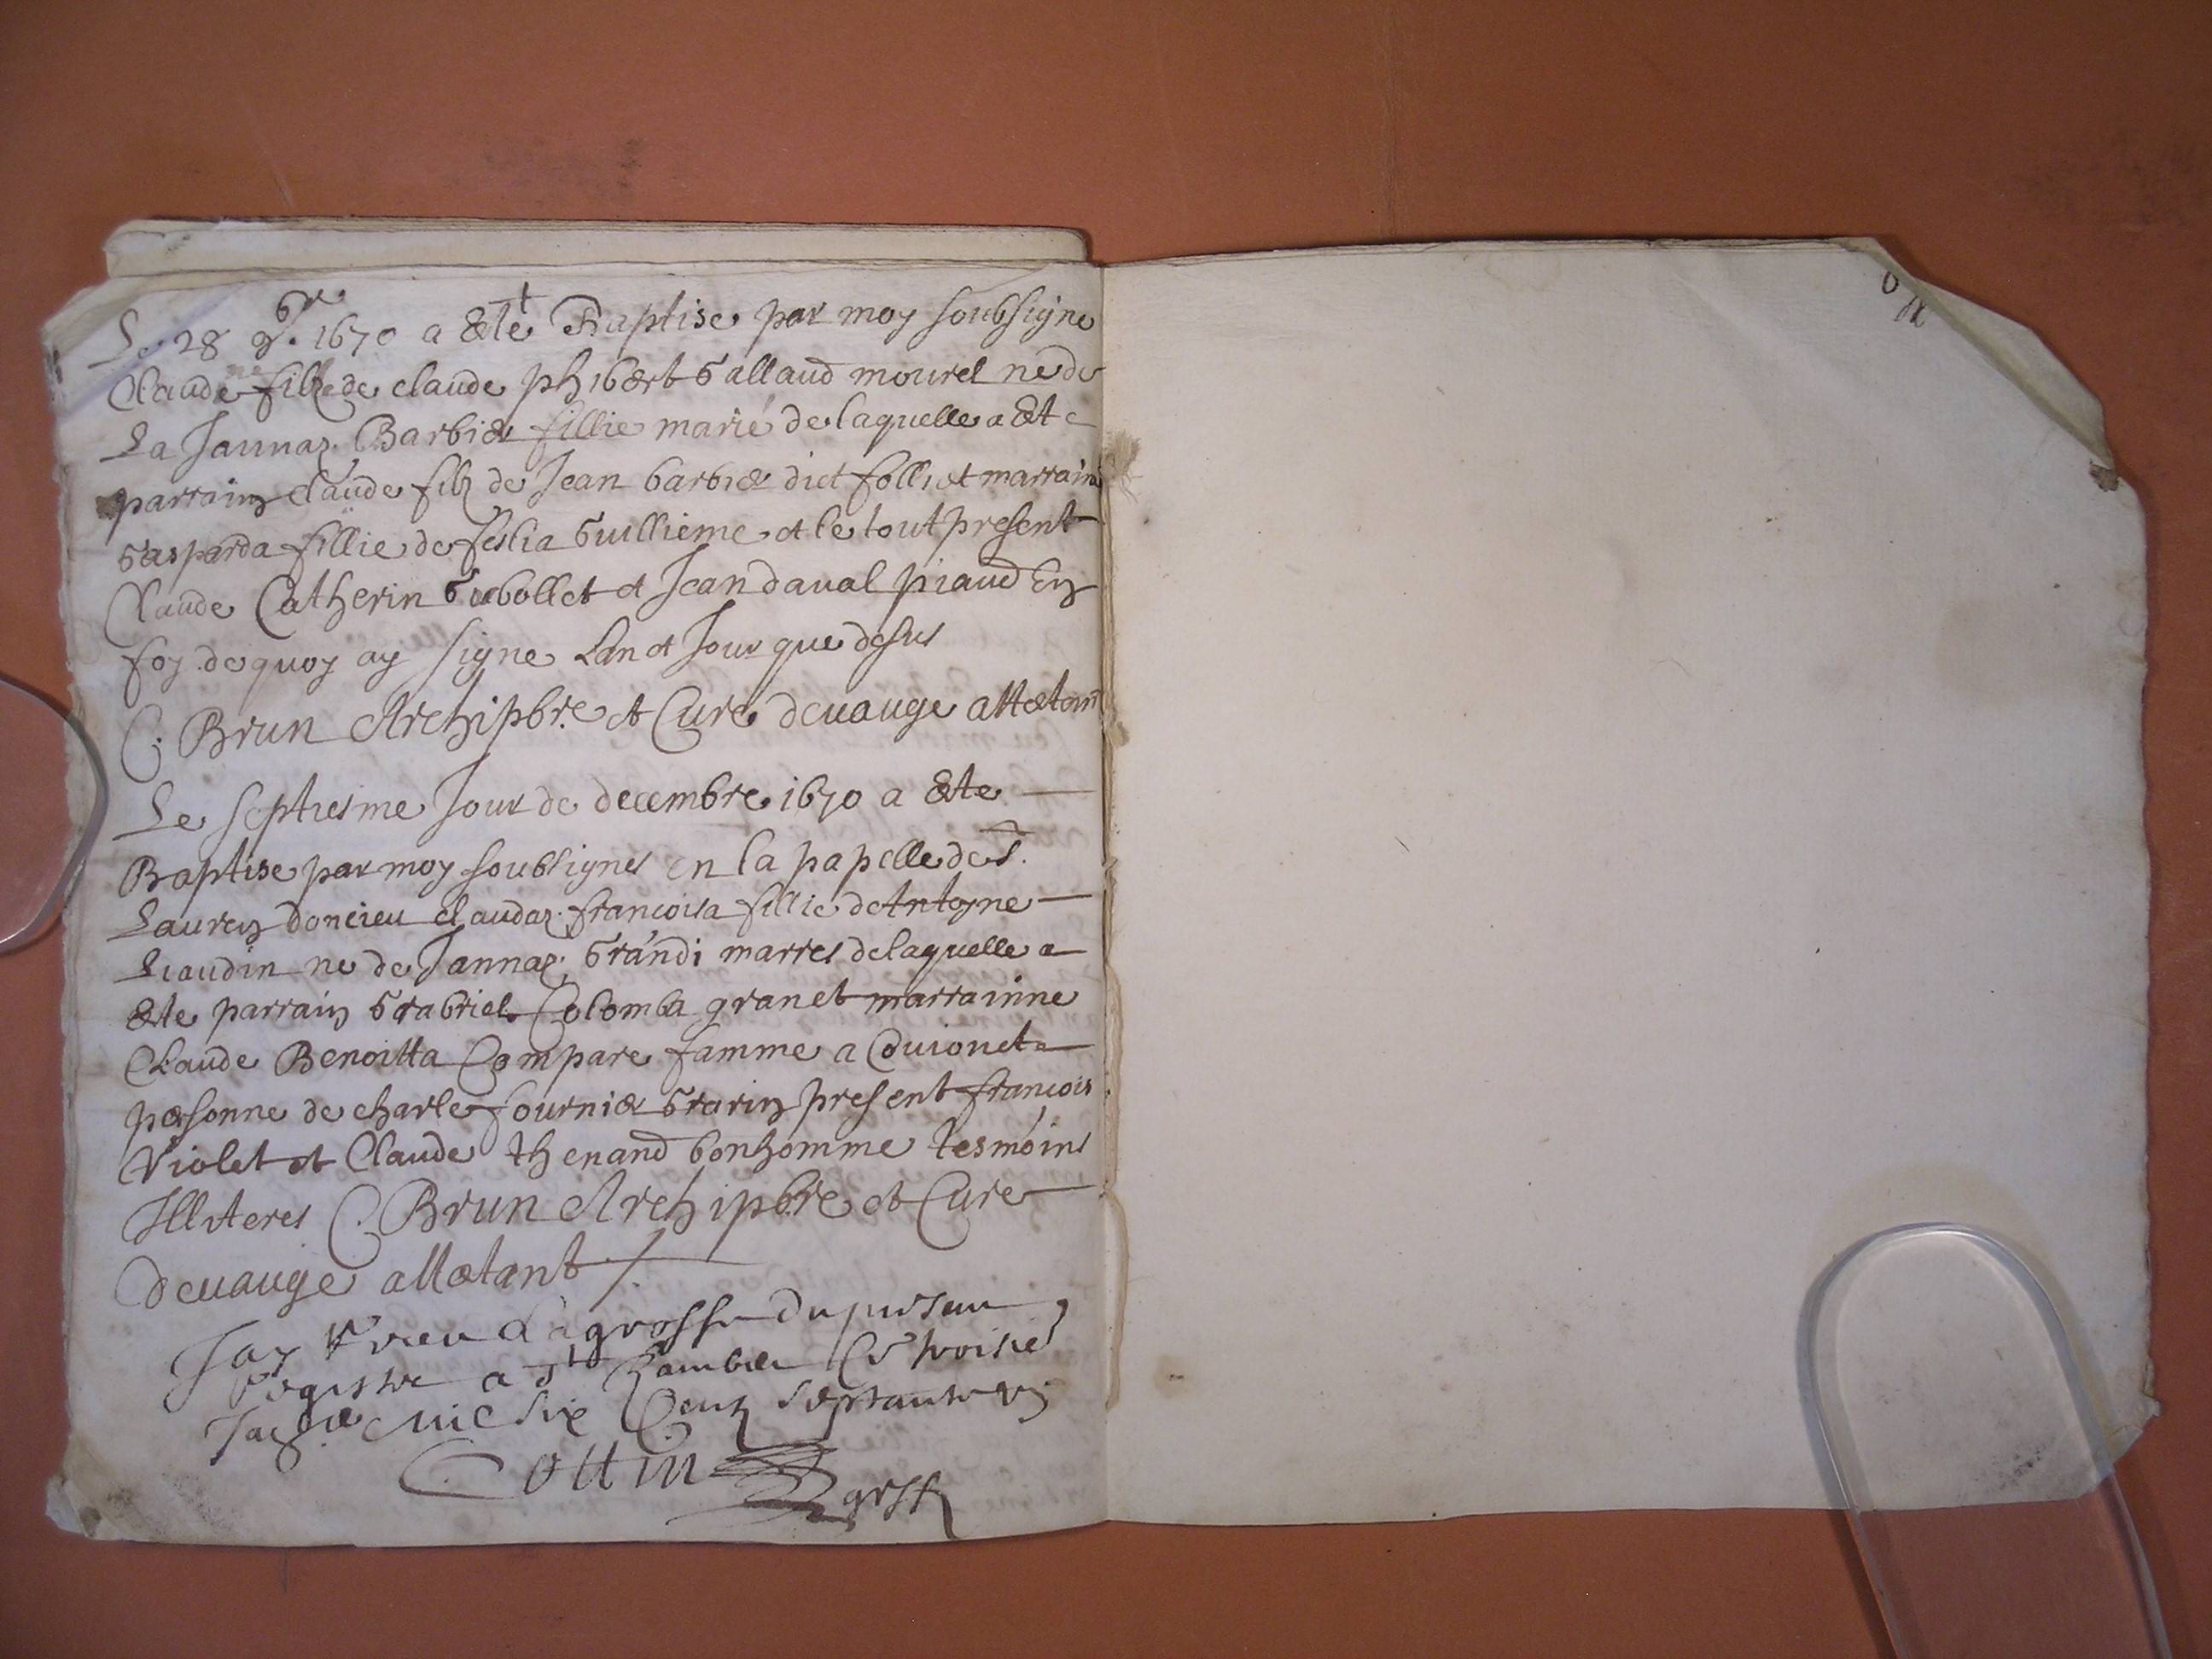 Le 28 9br. 1670 a Ete Baptise par moy soubsigne
Claude fille de claude phibert Gallaud mourel ne de
La Jannaz Barbier fillie marié de laquelle a Ete
parrain claude filz de Jean barbier dict folliet marraine
Gasparda fillie de feslia Guillieme et le tout present
Claude Catherin Gubollet et Jean daval piaud En
foy de quoy ay signe Lan et Jour que desus
C. Brun Archipbre et Cure devauge attetant
Le septiesme Jour de decembre 1670 a Ete
Baptise par moy soubsignes en la papelle de S.
Lauren doncieu claudaz francoisa fillie de Antoyne
Liaudin ne de Jannaz Grandi marres de laquelle a
Ete parrain Grabriel Colomba granet marrainne
Claude Benoitta Compare famme a Guionet
personne de charle fournier Grarin present francois
Violet et Claude thenand bonhomme tesmoins
Illiteres C. Brun Archipbre et Cure
devauge attetant
Jay Receu La grosse du present
Registre a St Rambert Ce troisie
Mil Six Centz Septante
Cottin